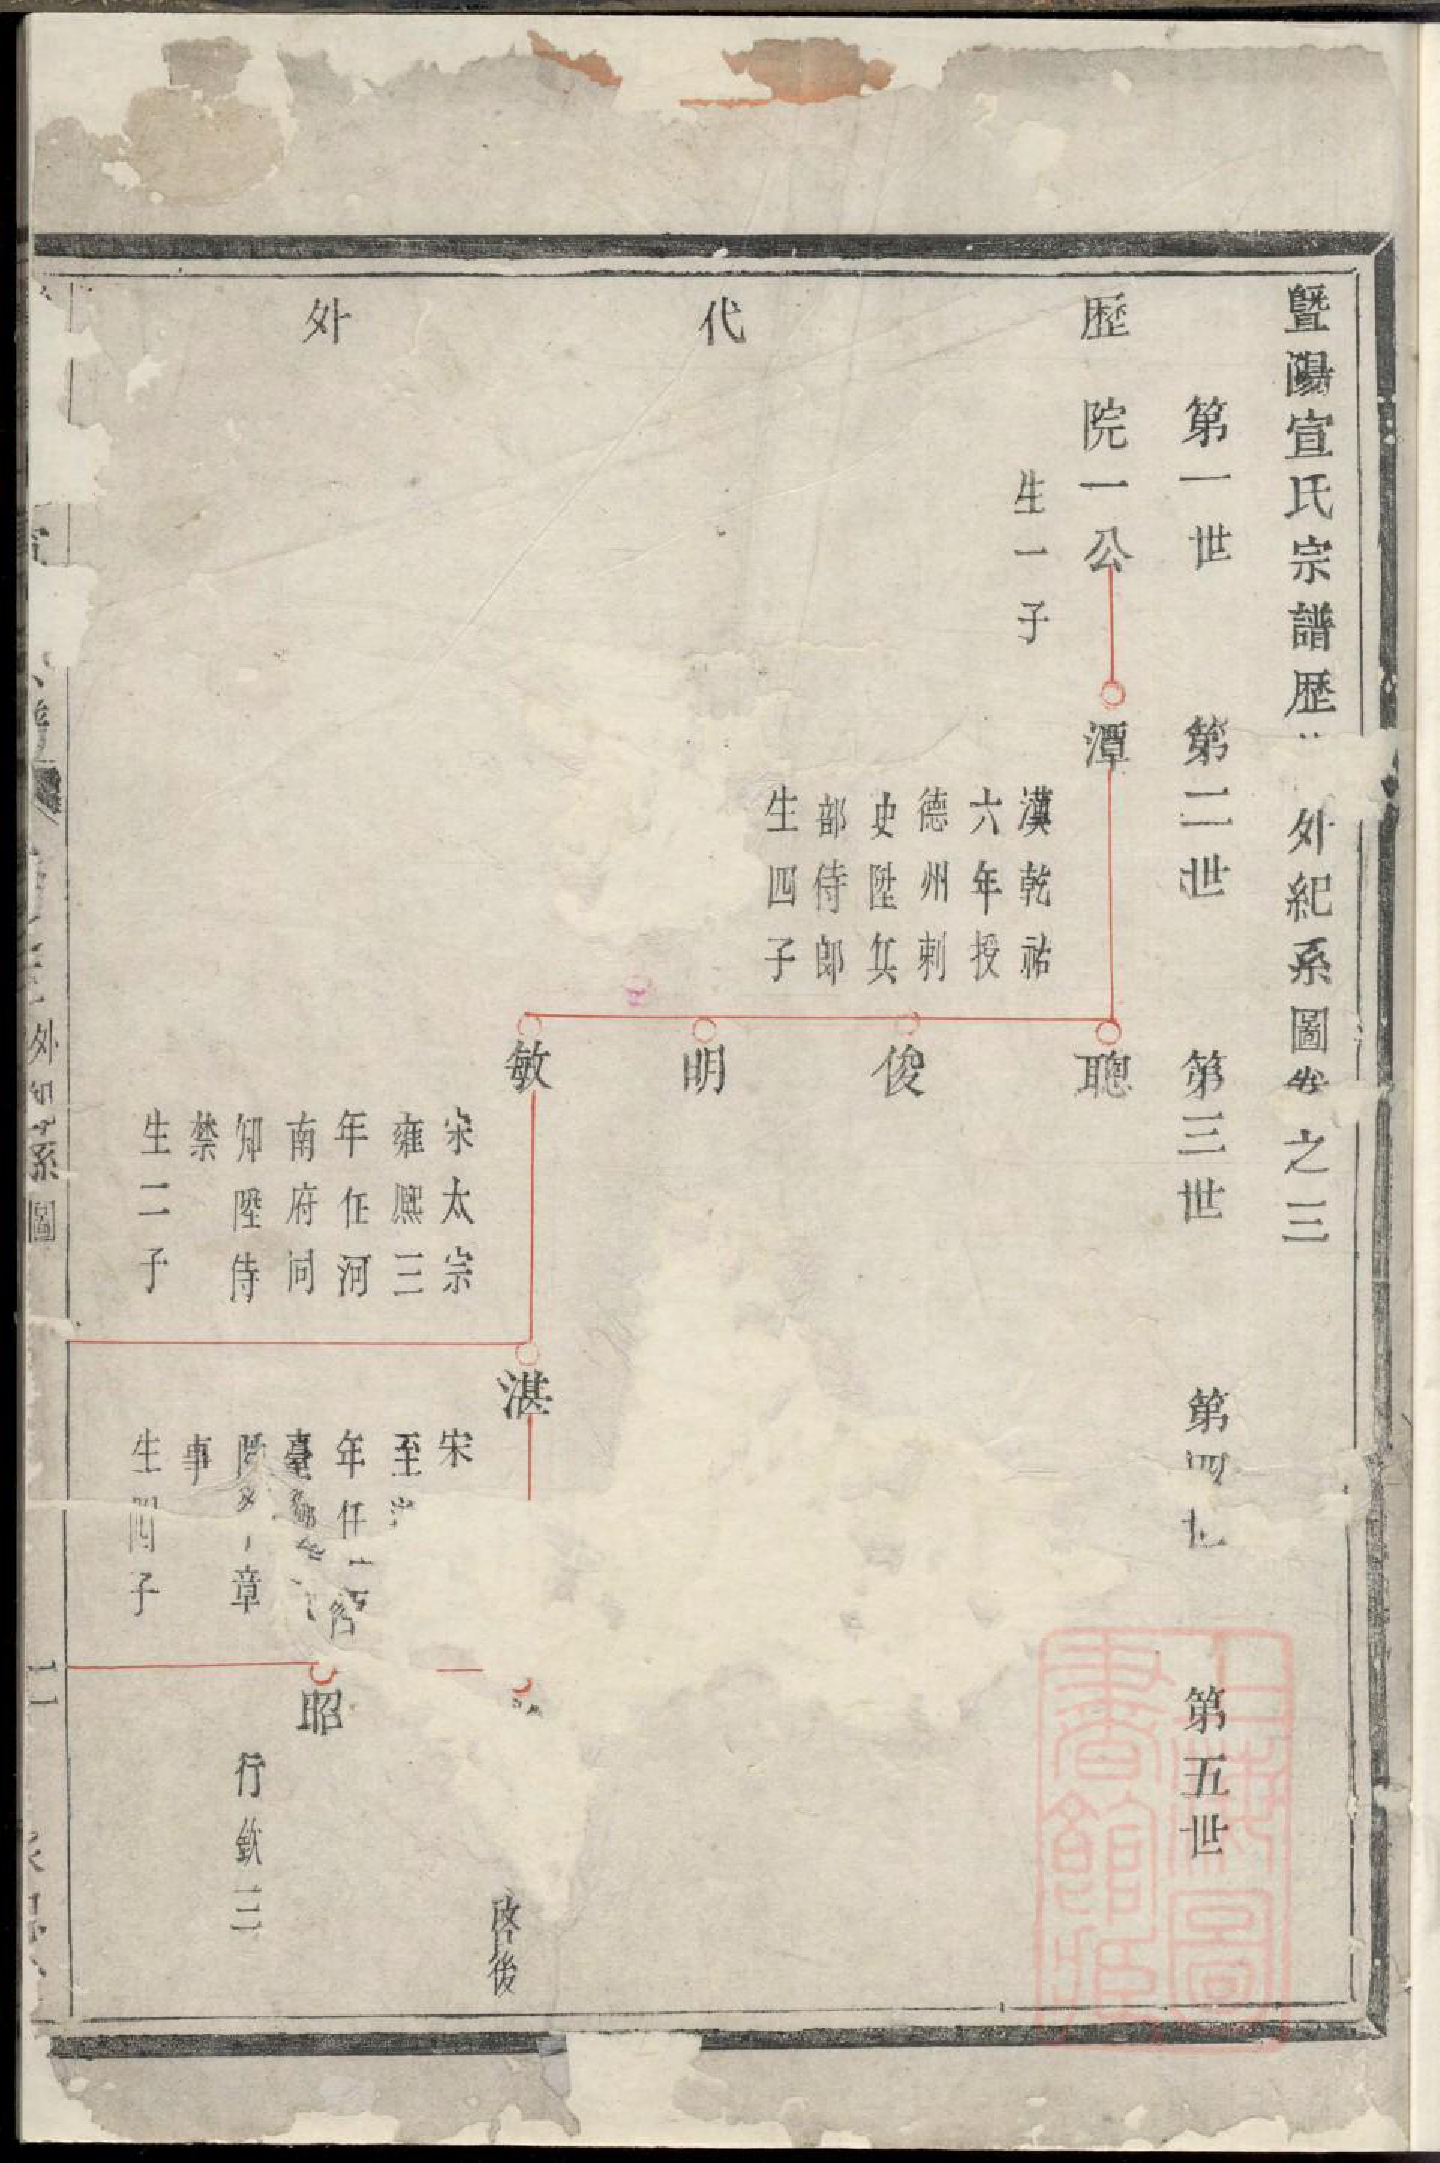 暨陽宣氏宗譜歷 外紀系圖卷之三
第一世
第二世
第三世
第四世
第五世
歷
代
外
院一公
生一子
潭
漢乾祐
六年授
德州刺
史陞兵
部侍郎
生四子
聰
俊
明
敏
宋太宗
雍熈三
年任河
南府同
知陞侍
禁
生二子
湛
宋
至
年任
臺
章
事
生四子
啓後
昭
行欽三
外紀系圖
上海圖書館藏